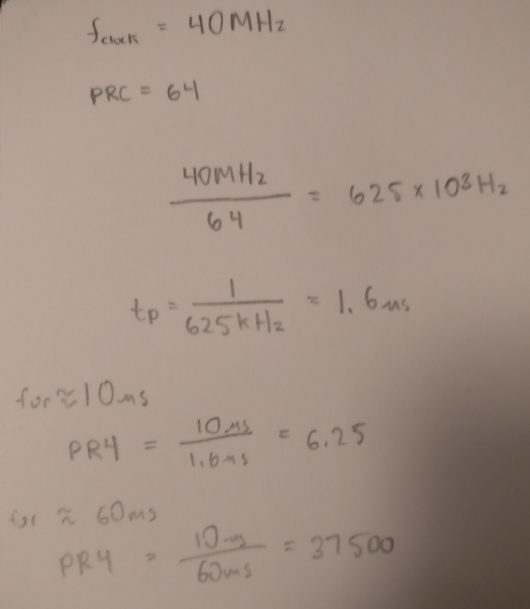 fclock = 40MHz
PRC = 64
40MHz / 64 = 625 × 10³ Hz
tp = 1 / 625kHz = 1.6 us
for ≈ 10 us
PR4 = 10us / 1.6us = 6.25
for ≈ 60ms
PR4 = 10us / 60ms = 37500